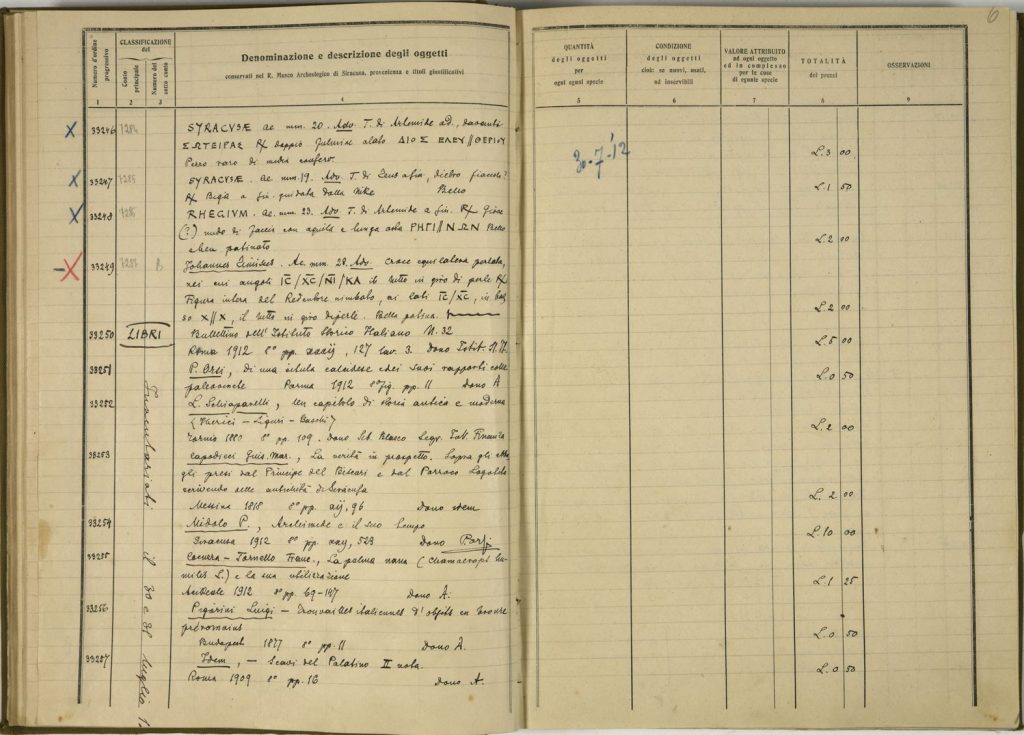 6
Numero d'ordine progressivo
CLASSIFICAZIONE del
Conto principale
Numero del sotto conto
Denominazione e descrizione degli oggetti
conservati nel R. Museo Archeologico di Siracusa, provenienza e titoli giustificativi
QUANTITÀ degli oggetti per ogni specie
CONDIZIONE degli oggetti cioè: se nuovi, usati, od inservibili
VALORE ATTRIBUITO ad ogni oggetto ed in complesso per le cose di eguale specie
TOTALITÀ dei prezzi
OSSERVAZIONI
1 2 3 4 5 6 7 8 9
X 33246 7284 SYRACVSÆ ae mm. 20. Adv. T. di Artemide ad., davanti
30-7-12
ΣΩΤΕΙΡΑΣ Rx doppio fulmine alato ΔΙΟΣ ΕΛΕΥ//ΘΕΡΙΟΥ
Pezzo raro di media conserv. L. 3 00
X 33247 7285 SYRACVSÆ. ae. mm. 19. Adv. T. di Zeus a sin., dietro fiaccola?
Rx Biga a sin. guidata dalla Nike Bello L. 1 50
X 33248 7286 RHEGIVM. ae. mm. 23. Adv. T. di Artemide a sin. Rx Giove
(?) nudo di faccia con aquila e lunga asta ΡΗΓΙ//ΝΩΝ Bello
e ben patinato L. 2 00
-X 33249 7287 B Johannes Zimisces. Ae. mm. 28. Adv. Croce equilatera perlata,
nei cui angoli IC/XC/NI/KA il tutto in giro di perle Rx
Figura intera del Redentore nimbato, ai lati IC/XC, in bas
so X//X, il tutto in giro di perle. Bella patina. L. 2 00
33250 LIBRI Bullettino dell'Istituto Storico Italiano N. 32
Roma 1912 8° pp. xxxij, 127 tav. 3. Dono Istit. L. 5 00
33251 P. Orsi, di una isola calcidese e dei suoi rapporti colle
Parma 1912 8° fig. pp. 11 dono A L. 0 50
33252 L. Schiaparelli, un capitolo di storia antica e moderna
Torino 1880 8° pp. 109. Dono L. 2 00
33253 Capodieci Gius. Mar., La verità in prospetto. Sopra gli
gli presi dal Principe del Biscari e dal Parroco Logoteta
scrivendo delle antichità di Siracusa
Messina 1818 8° pp. 96 Dono idem L. 2 00
33254 Midolo P., Archimede e il suo tempo
Siracusa 1912 8° pp. 528 Dono P. Orsi L. 10 00
33255 Franc., La palma nana (Chamaerops hu-
milis L.) e la sua utilizzazione
Acireale 1912 8° pp. 69-147 Dono A. L. 1 25
33256 Pigorini Luigi - Trouvailles italiennes d'objets en bronze
préromains
Budapest 1877 8° pp. 11 Dono A. L. 0 50
33257 Idem, - Scavi del Palatino II nota.
Roma 1909 8° pp. 16 dono A. L. 0 50
Inventariati il 30 e 31 luglio 1.